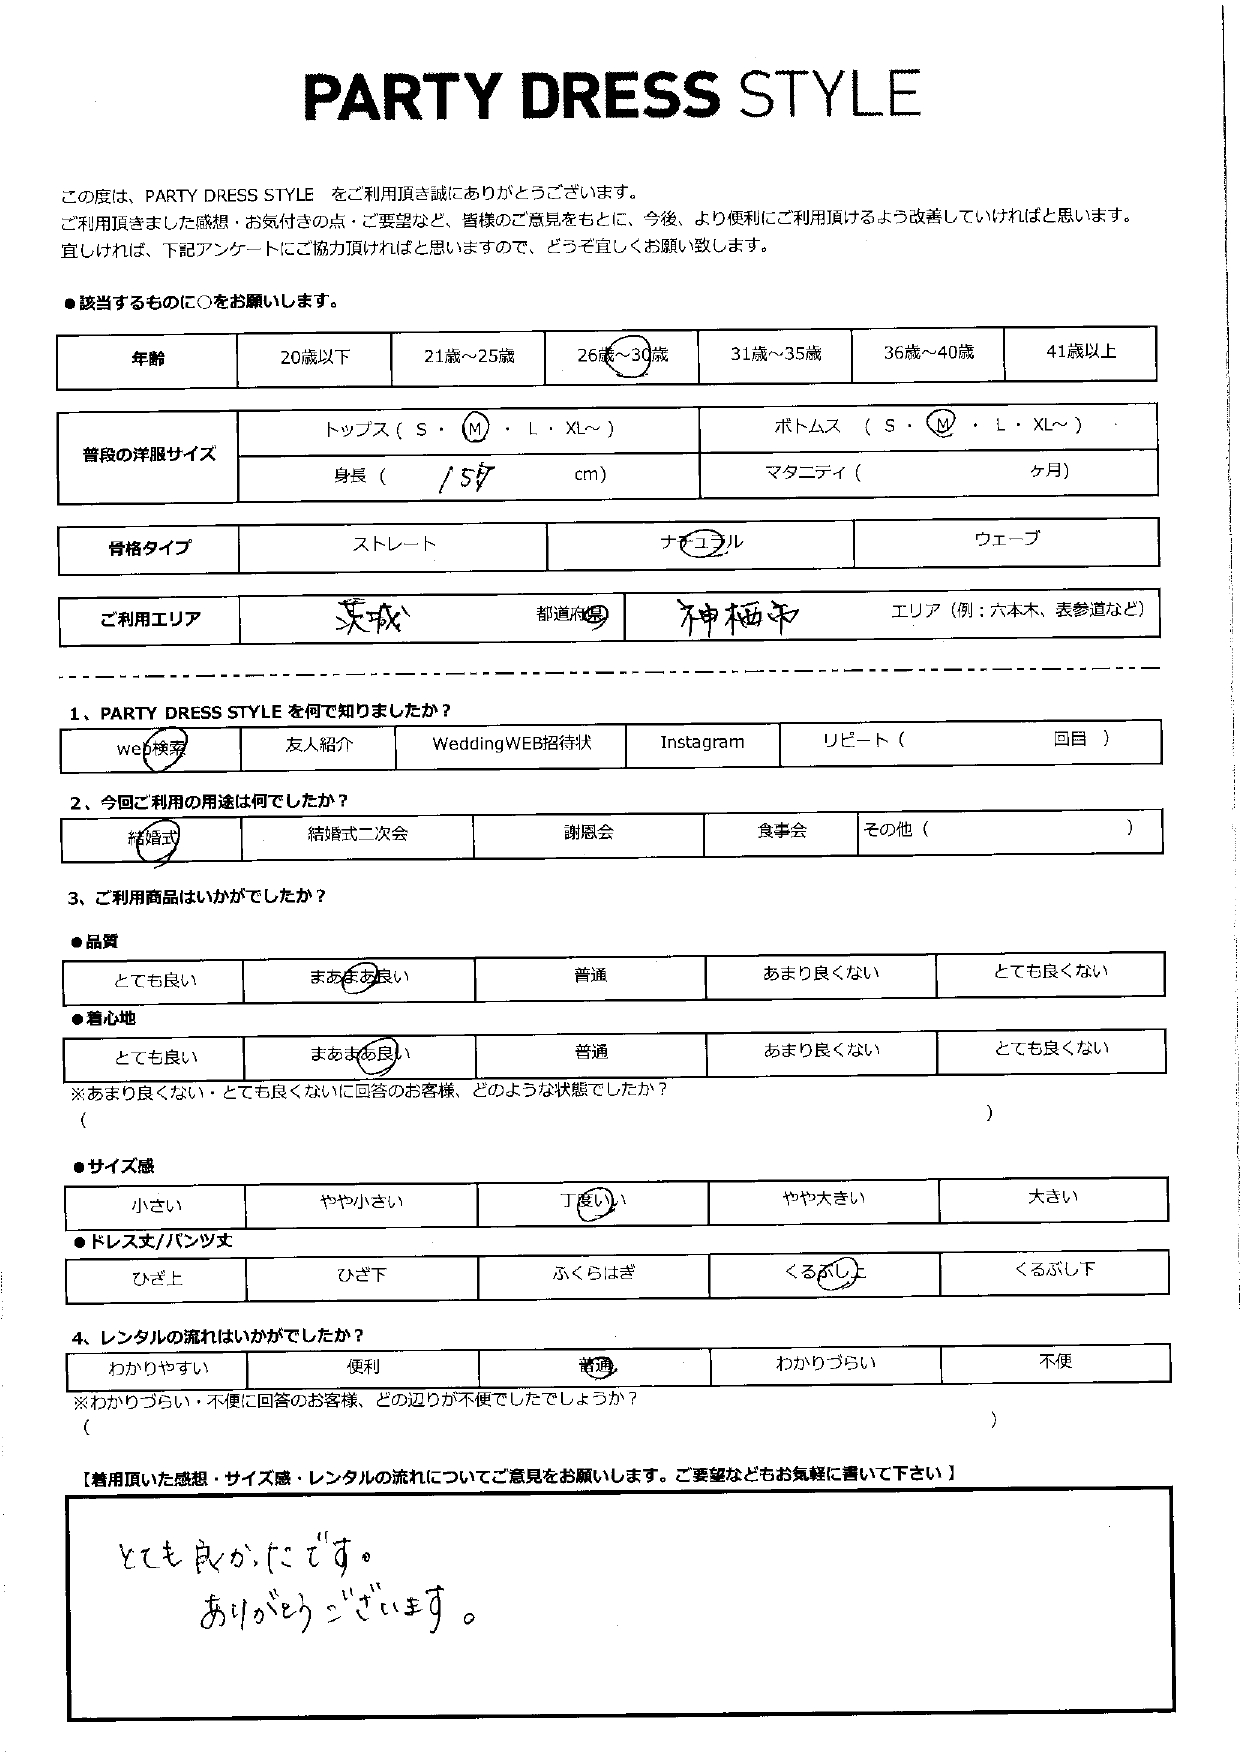 PARTY DRESS STYLE
この度は、PARTY DRESS STYLE をご利用頂き誠にありがとうございます。
ご利用頂きました感想・お気付きの点・ご要望など、皆様のご意見をもとに、今後、より便利にご利用頂けるよう改善していければと思います。
宜しければ、下記アンケートにご協力頂ければと思いますので、どうぞ宜しくお願い致します。
●該当するものに○をお願いします。
年齢 20歳以下 21歳～25歳 26歳～30歳 31歳～35歳 36歳～40歳 41歳以上
普段の洋服サイズ トップス ( S ・ M ・ L ・ XL～ ) ボトムス ( S ・ M ・ L ・ XL～ )
身長 ( 157 cm) マタニティ ( ヶ月)
骨格タイプ ストレート ナチュラル ウェーブ
ご利用エリア 茨城 都道府県 神栖市 エリア（例：六本木、表参道など）
1、PARTY DRESS STYLE を何で知りましたか？
web検索 友人紹介 WeddingWEB招待状 Instagram リピート ( 回目 )
2、今回ご利用の用途は何でしたか？
結婚式 結婚式二次会 謝恩会 食事会 その他 ( )
3、ご利用商品はいかがでしたか？
●品質
とても良い まあまあ良い 普通 あまり良くない とても良くない
●着心地
とても良い まあまあ良い 普通 あまり良くない とても良くない
※あまり良くない・とても良くないに回答のお客様、どのような状態でしたか？
( )
●サイズ感
小さい やや小さい 丁度いい やや大きい 大きい
●ドレス丈/パンツ丈
ひざ上 ひざ下 ふくらはぎ くるぶし上 くるぶし下
4、レンタルの流れはいかがでしたか？
わかりやすい 便利 普通 わかりづらい 不便
※わかりづらい・不便に回答のお客様、どの辺りが不便でしたでしょうか？
( )
【着用頂いた感想・サイズ感・レンタルの流れについてご意見をお願いします。ご要望などもお気軽に書いて下さい】
とても良かったです。
ありがとうございます。